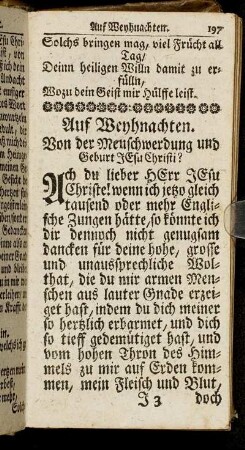 Auf Weyhnachten. 197
Solchs bringen mag, viel Frücht all
Tag/
Deinn heiligen Willn damit zu er-
fülln,
Wozu dein Geist mir Hülffe leist.
Auf Weyhnachten.
Von der Menschwerdung und
Geburt JEsu Christi?
Ach du lieber HErr JEsu
Christe! wenn ich jetzo gleich
tausend oder mehr Engli-
sche Zungen hätte, so könnte ich
dir dennoch nicht genugsam
dancken für deine hohe, grosse
und unaussprechliche Wol-
that, die du mir armen Men-
schen aus lauter Gnade erzei-
get hast, indem du dich meiner
so hertzlich erbarmet, und dich
so tieff gedemütiget hast, und
vom hohen Thron des Him-
mels zu mir auf Erden kom-
men, mein Fleisch und Blut,
J 3 doch